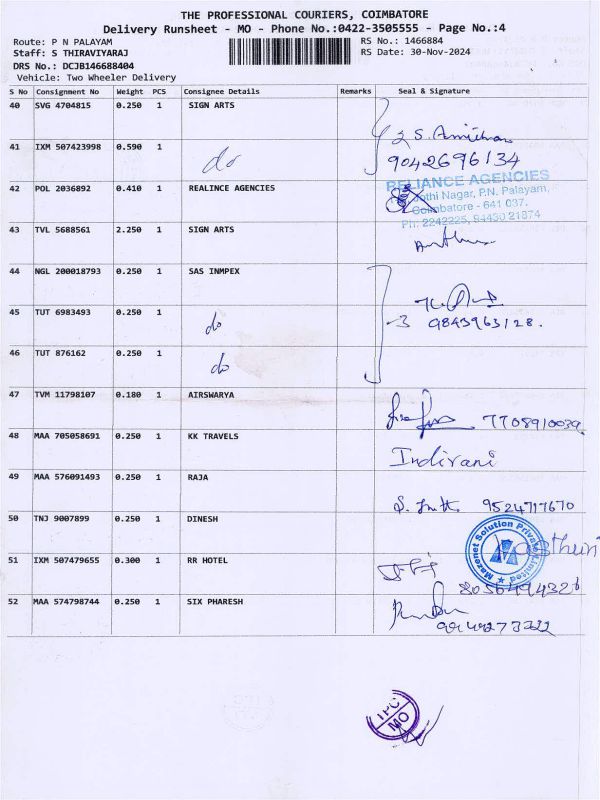 THE PROFESSIONAL COURIERS, COIMBATORE
Delivery Runsheet - MO - Phone No.:0422-3505555 - Page No.:4
Route: P N PALAYAM
RS No.: 1466884
Staff: S THIRAVIYARAJ
RS Date: 30-Nov-2024
DRS No.: DCJB146688404
Vehicle: Two Wheeler Delivery
S No Consignment No Weight PCS Consignee Details Remarks Seal & Signature
40 SVG 4704815 0.250 1 SIGN ARTS
41 IXM 507423998 0.590 1 do
9042696134
42 POL 2036892 0.410 1 REALINCE AGENCIES
RELIANCE AGENCIES
Nagar, P.N. Palayam,
Coimbatore - 641 037.
Ph: 2242225, 94430 21874
43 TVL 5688561 2.250 1 SIGN ARTS
44 NGL 200018793 0.250 1 SAS INMPEX
45 TUT 6983493 0.250 1 do
3 9843963128.
46 TUT 876162 0.250 1 do
47 TVM 11798107 0.180 1 AIRSWARYA
7708910039
48 MAA 705058691 0.250 1 KK TRAVELS Indirani
49 MAA 576091493 0.250 1 RAJA
9524717670
50 TNJ 9007899 0.250 1 DINESH
Mazenet Solution Private Limited
51 IXM 507479655 0.300 1 RR HOTEL
52 MAA 574798744 0.250 1 SIX PHARESH
TPC
MO